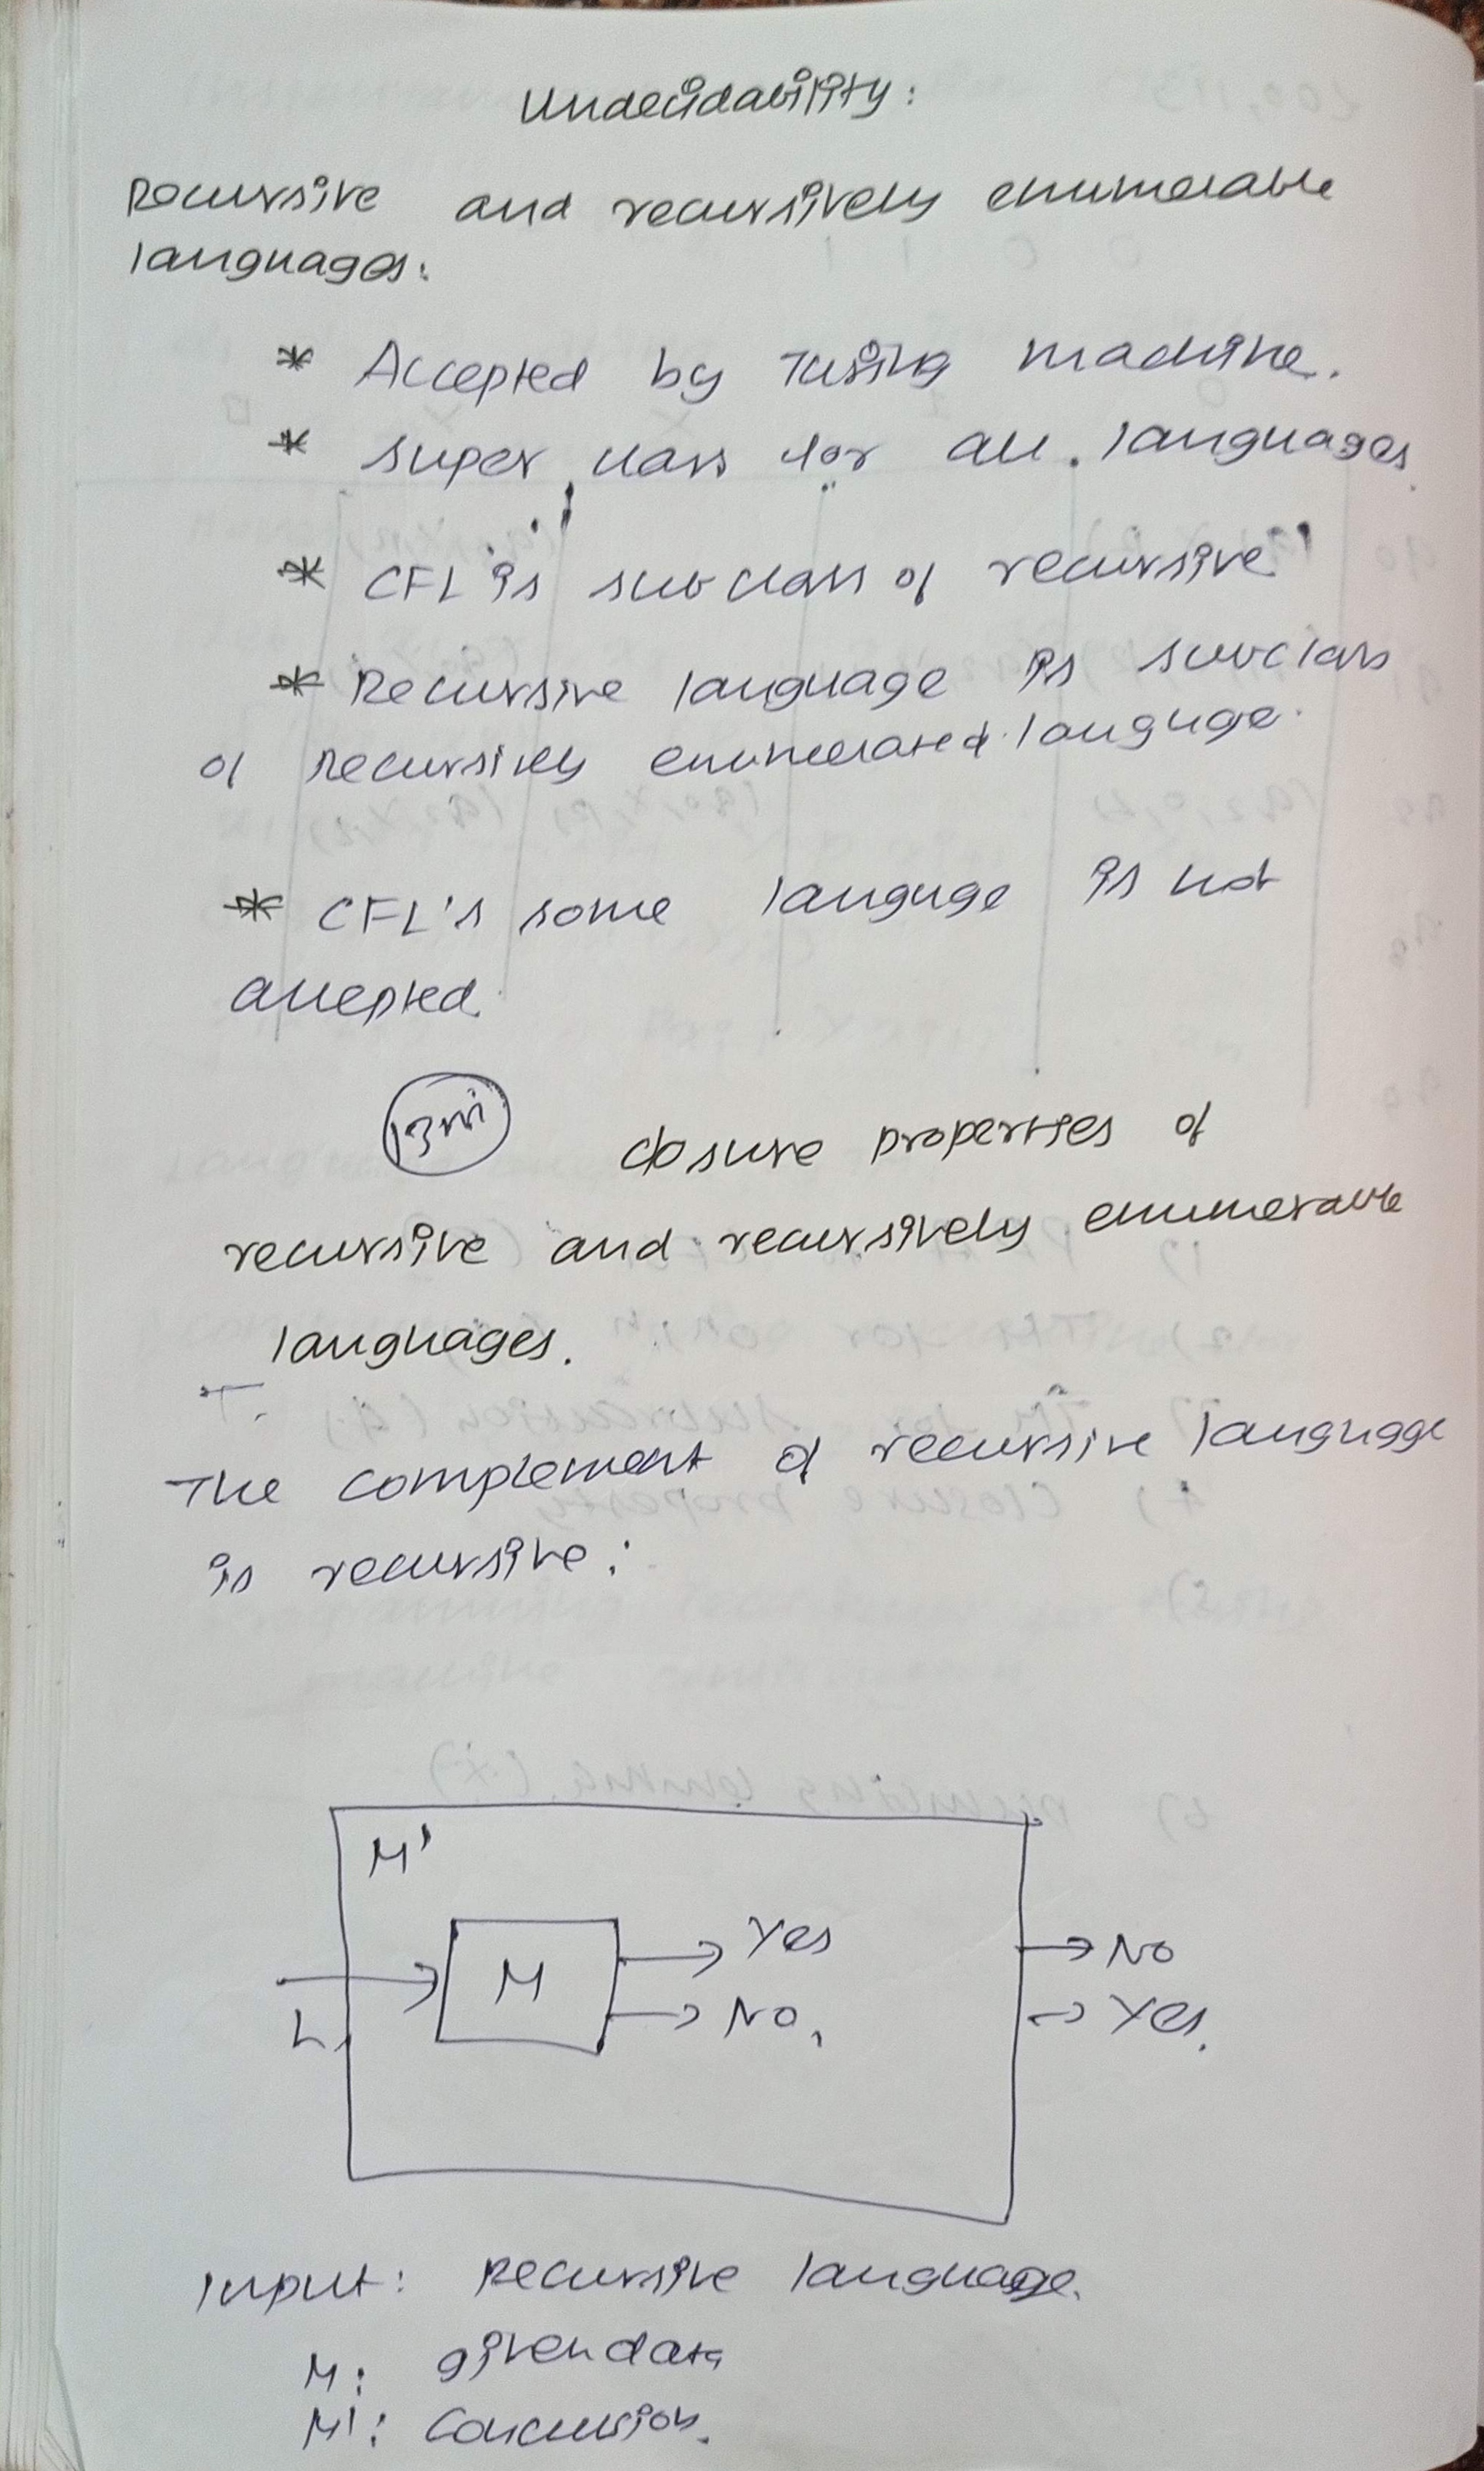 Undecidability:
Recursive and recursively enumerable
languages:
* Accepted by Turing machine.
* super class for all languages
* CFL is subclass of recursive
* Recursive language is subclass
of recursively enumerated languge.
* CFL's some languge is not
accepted.
13m closure properties of
recursive and recursively enumerable
languages.
The complement of recursive language
is recursive:
M'
M
Yes
No
No
Yes.
L
Input: Recursive language.
M: given data
M': Conclusion.